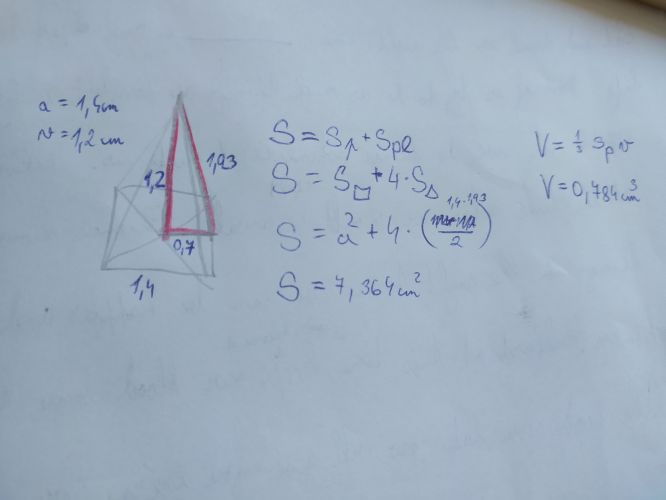 a = 1,4cm
v = 1,2 cm
1,2
1,93
0,7
1,4
S = Sp + Spl
S = S□ + 4·S△
S = a² + 4·(1,4·1,93/2)
S = 7,364cm²
V = 1/3 Sp v
V = 0,784cm³